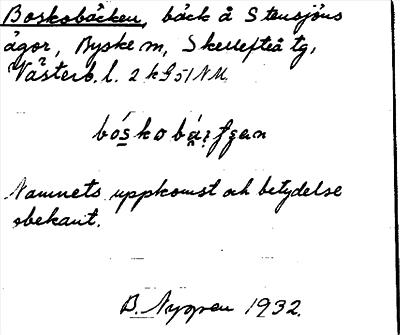 Boskobäcken, bäck å Stensjöns
ägor, Byske m, Skellefteå tg,
Västerb. l. 2 kG51NM.
bóskobä
Namnets uppkomst och betydelse
obekant.
B. Nygren 1932.